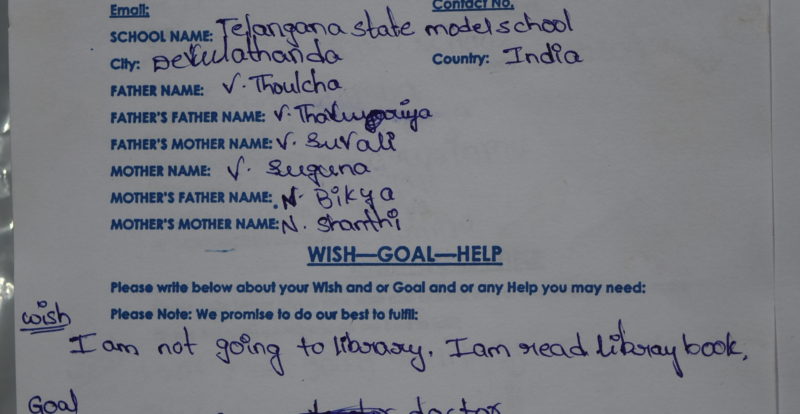 Email: Contact No.
SCHOOL NAME: Telangana state model school
City: Devulathanda Country: India
FATHER NAME: V. Thoulcha
FATHER'S FATHER NAME: V.
FATHER'S MOTHER NAME: V. Suvali
MOTHER NAME: V. Suguna
MOTHER'S FATHER NAME: N. Bikya
MOTHER'S MOTHER NAME: N. Shanthi
WISH—GOAL—HELP
Please write below about your Wish and or Goal and or any Help you may need:
wish Please Note: We promise to do our best to fulfil:
I am not going to library. I am read libray book.
Goal doctor